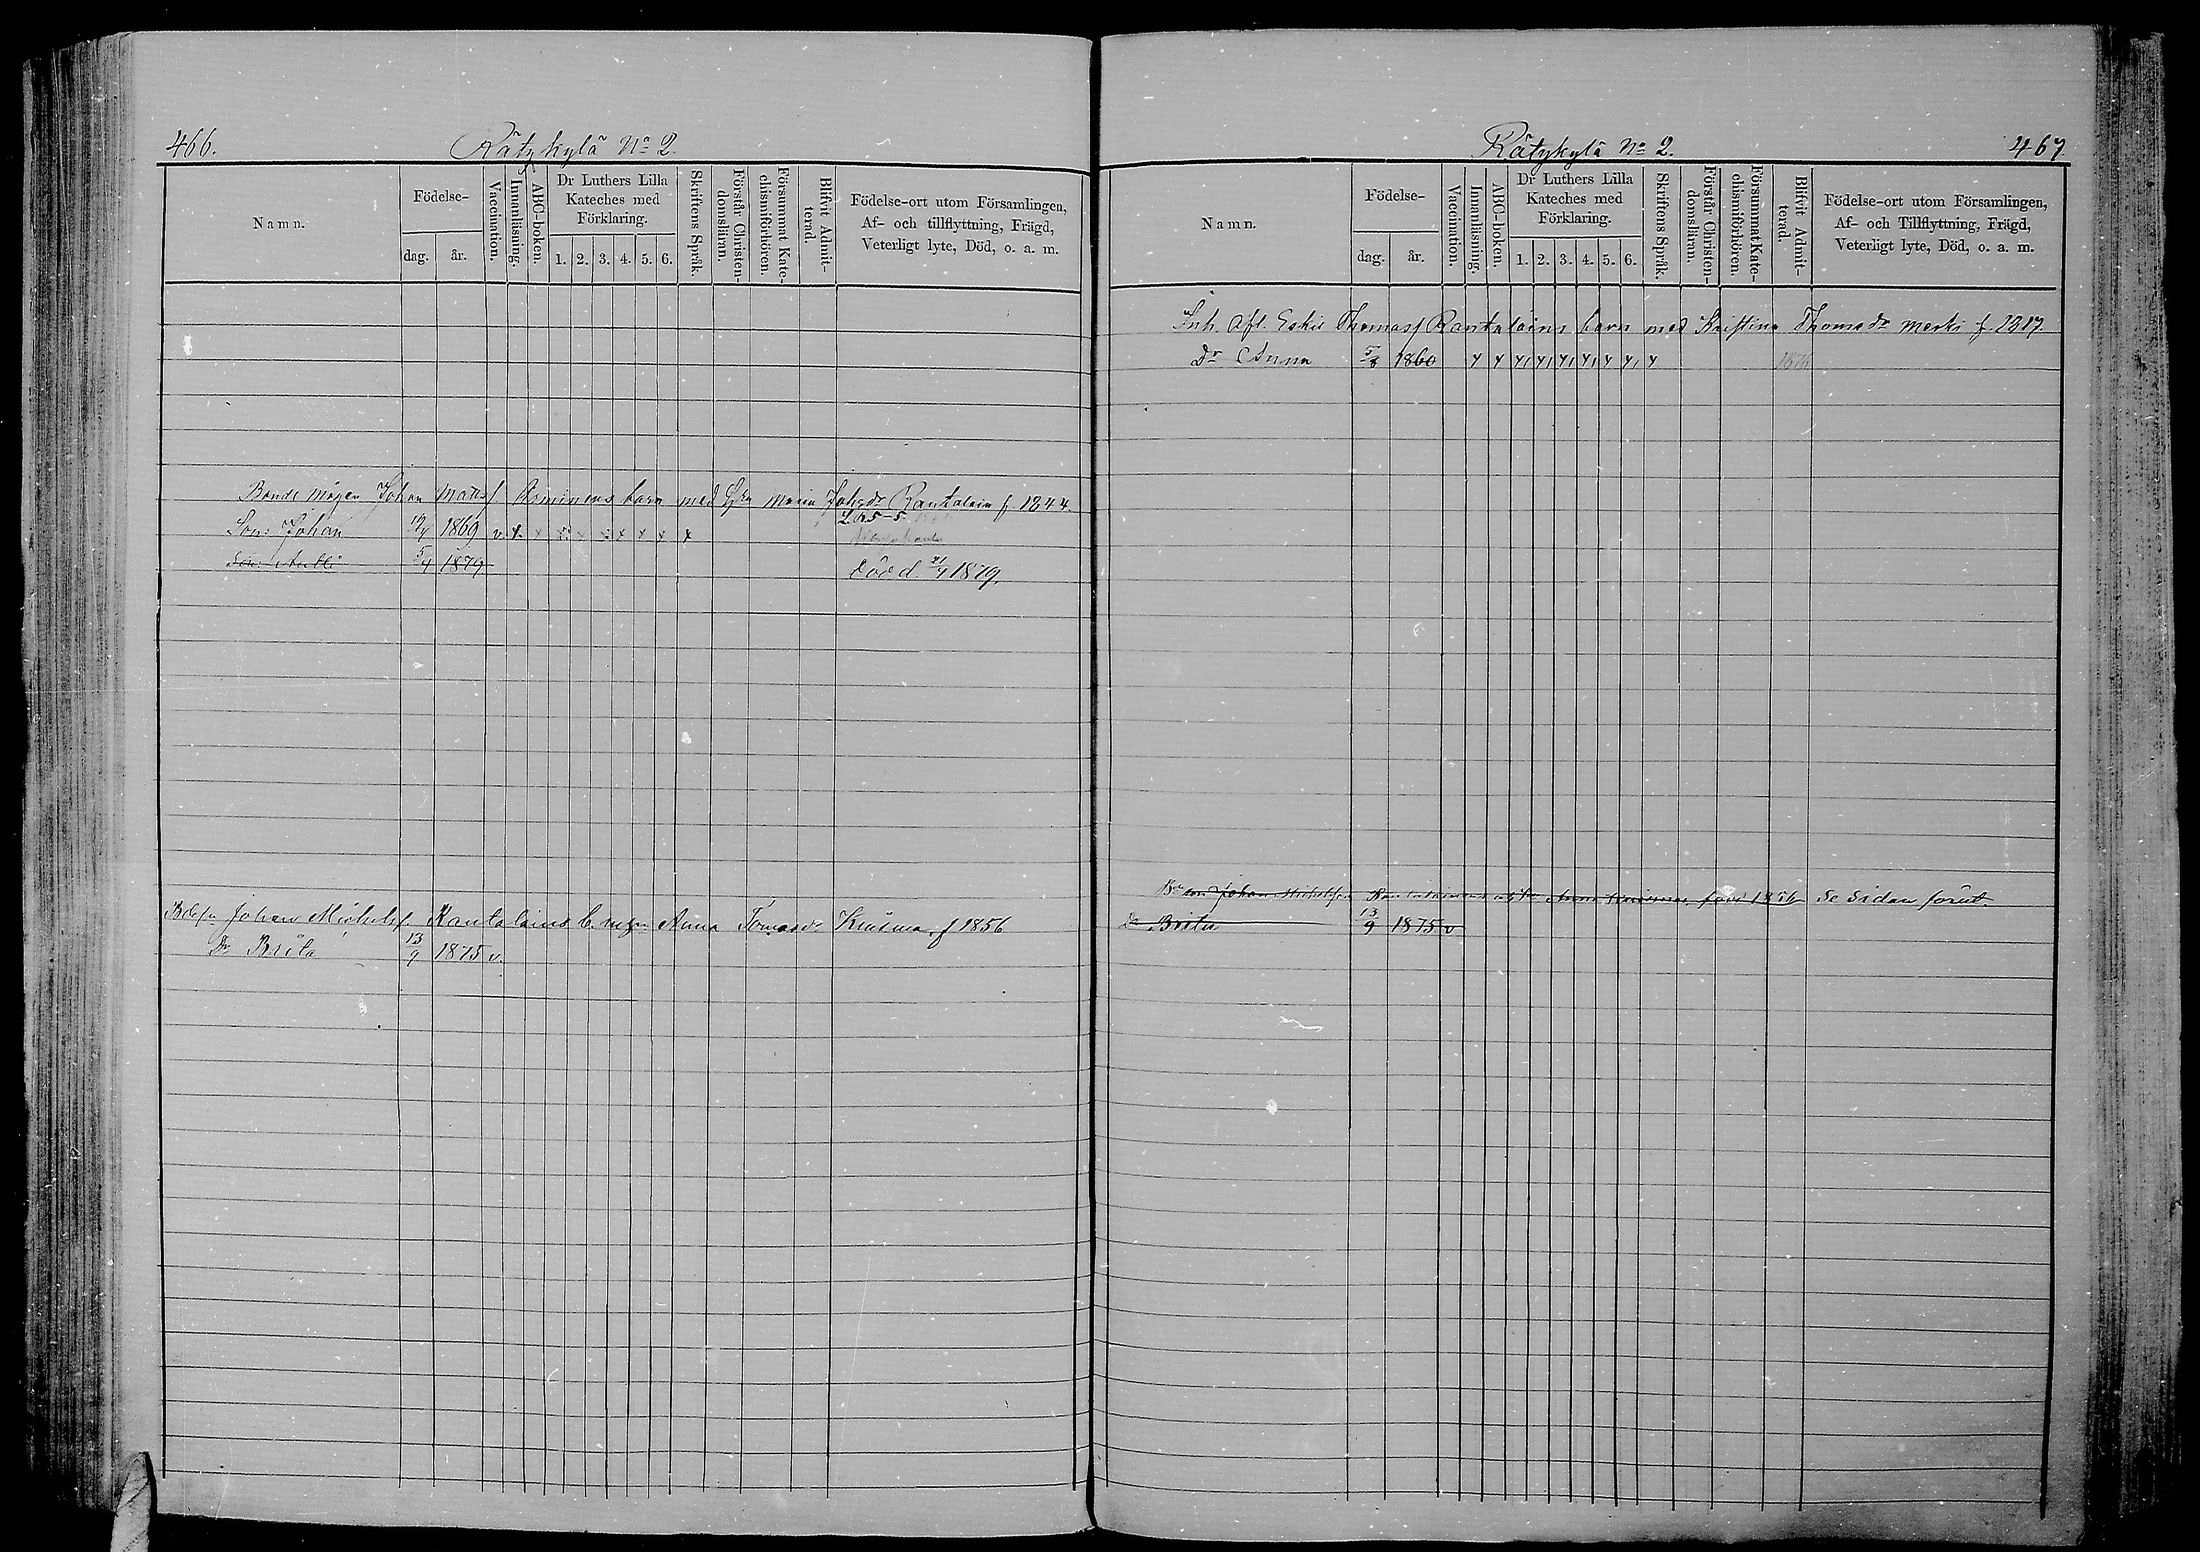 466.
Rätykylä No 2.
Namn.
Födelse-
dag.
år.
Vaccination.
Innanläsning.
ABC-boken.
Dr Luthers Lilla
Kateches med
Förklaring.
1. 2. 3. 4. 5. 6.
Skriftens Språk.
Förstår Christen-
domsläran.
Försummat Kate-
chismiförhören.
Blifvit Admit-
terad.
Födelse-ort utom Församlingen,
Af- och tillflyttning, Frägd,
Veterligt lyte, Död, o. a. m.
Bonde mågen Johan Matss barn med Maria Johsdr Rantalain f. 1844
Son: Johan 1869 v
Son: Antti 5/4 1879 död d. 21/4 1879.
Johan Michelss Rantalains b. m. Anna Tomasdr f 1856
Dr Brita 13/9 1875 v.
Rätykylä No 2.
467.
Namn.
Födelse-
dag.
år.
Vaccination.
Innanläsning.
ABC-boken.
Dr Luthers Lilla
Kateches med
Förklaring.
1. 2. 3. 4. 5. 6.
Skriftens Språk.
Förstår Christen-
domsläran.
Försummat Kate-
chismiförhören.
Blifvit Admit-
terad.
Födelse-ort utom Församlingen,
Af- och Tillflyttning, Frägd,
Veterligt lyte, Död, o. a. m.
Inh. Afl. Eskil Thomass Rantalains barn med Kristina Thomadr Marki f. 1817
Dr Anna 1860
Johan Michelsson Anna född 1856 se sidan förut.
Dr Brita 13/9 1875 v